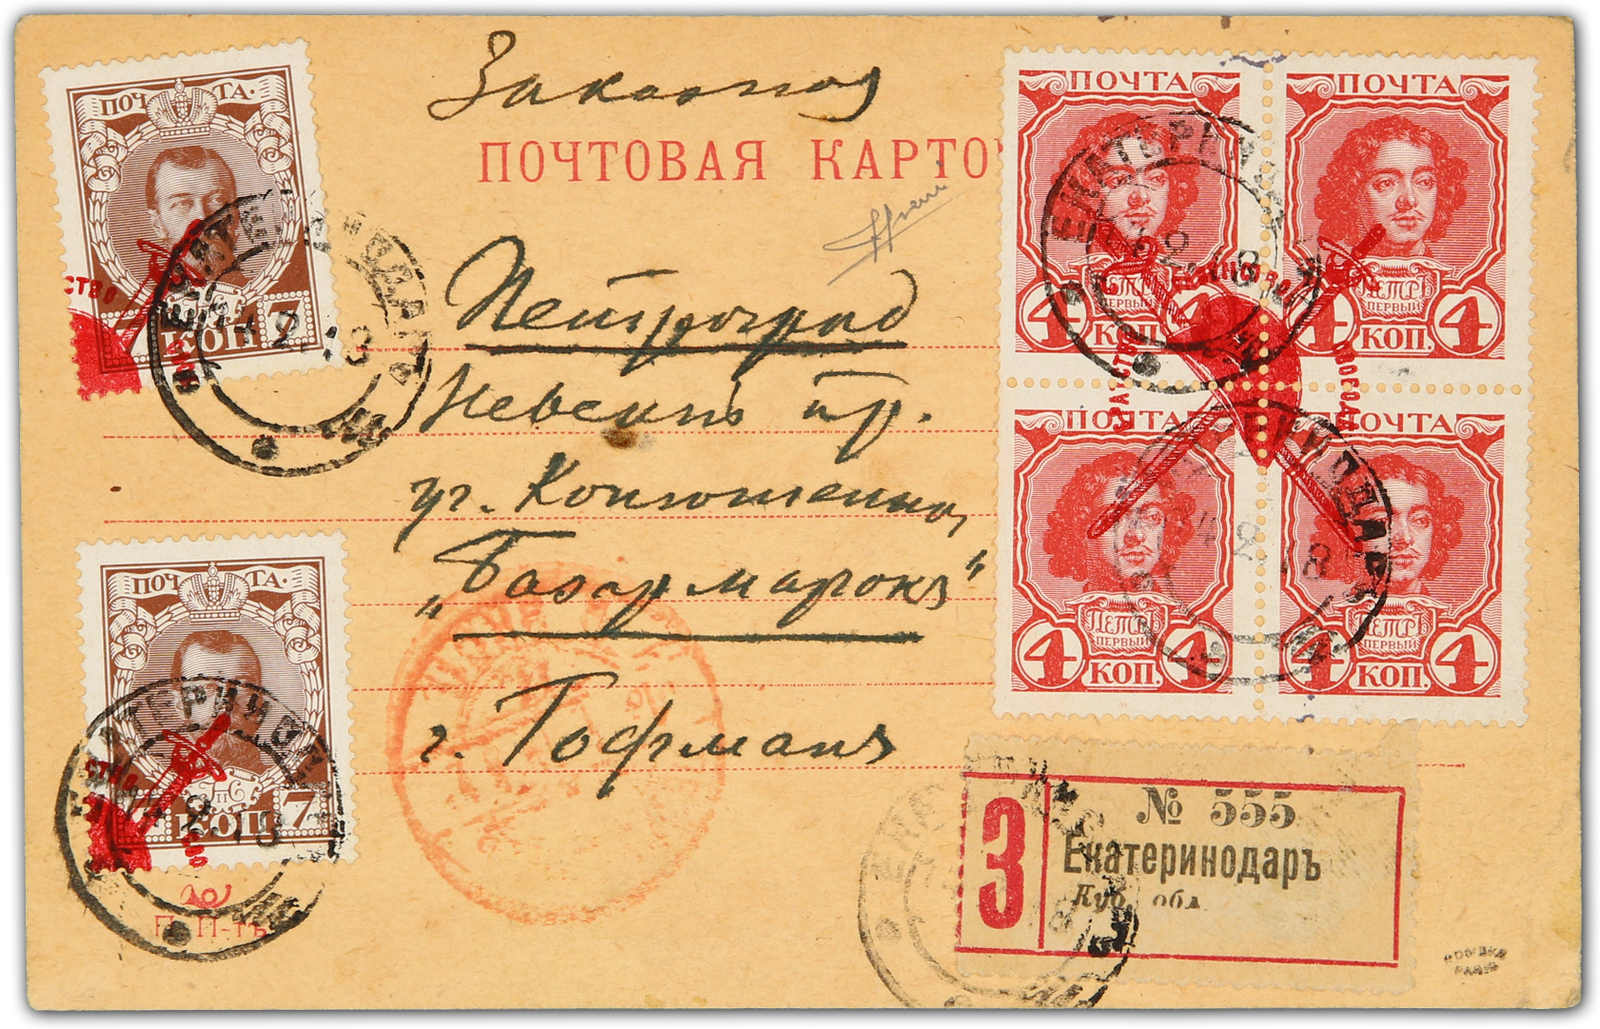 Заказная
ПОЧТОВАЯ КАРТО
ПОЧТА.
7 КОП. 7
ПОЧТА.
7 КОП. 7
ПОЧТА
ПЕТРЪ
ПЕРВЫЙ
4 КОП. 4
ПОЧТА
ПЕТРЪ
ПЕРВЫЙ
4 КОП. 4
ПОЧТА
ПЕТРЪ
ПЕРВЫЙ
4 КОП. 4
ПОЧТА
ПЕТРЪ
ПЕРВЫЙ
4 КОП. 4
ЕКАТЕРИНОДАРЪ
Петроградъ
Невскій пр.
уг. Конюшенно,
„Базармарокъ"
г. Гофманъ
З
№ 555
Екатеринодаръ
Куб. обл.